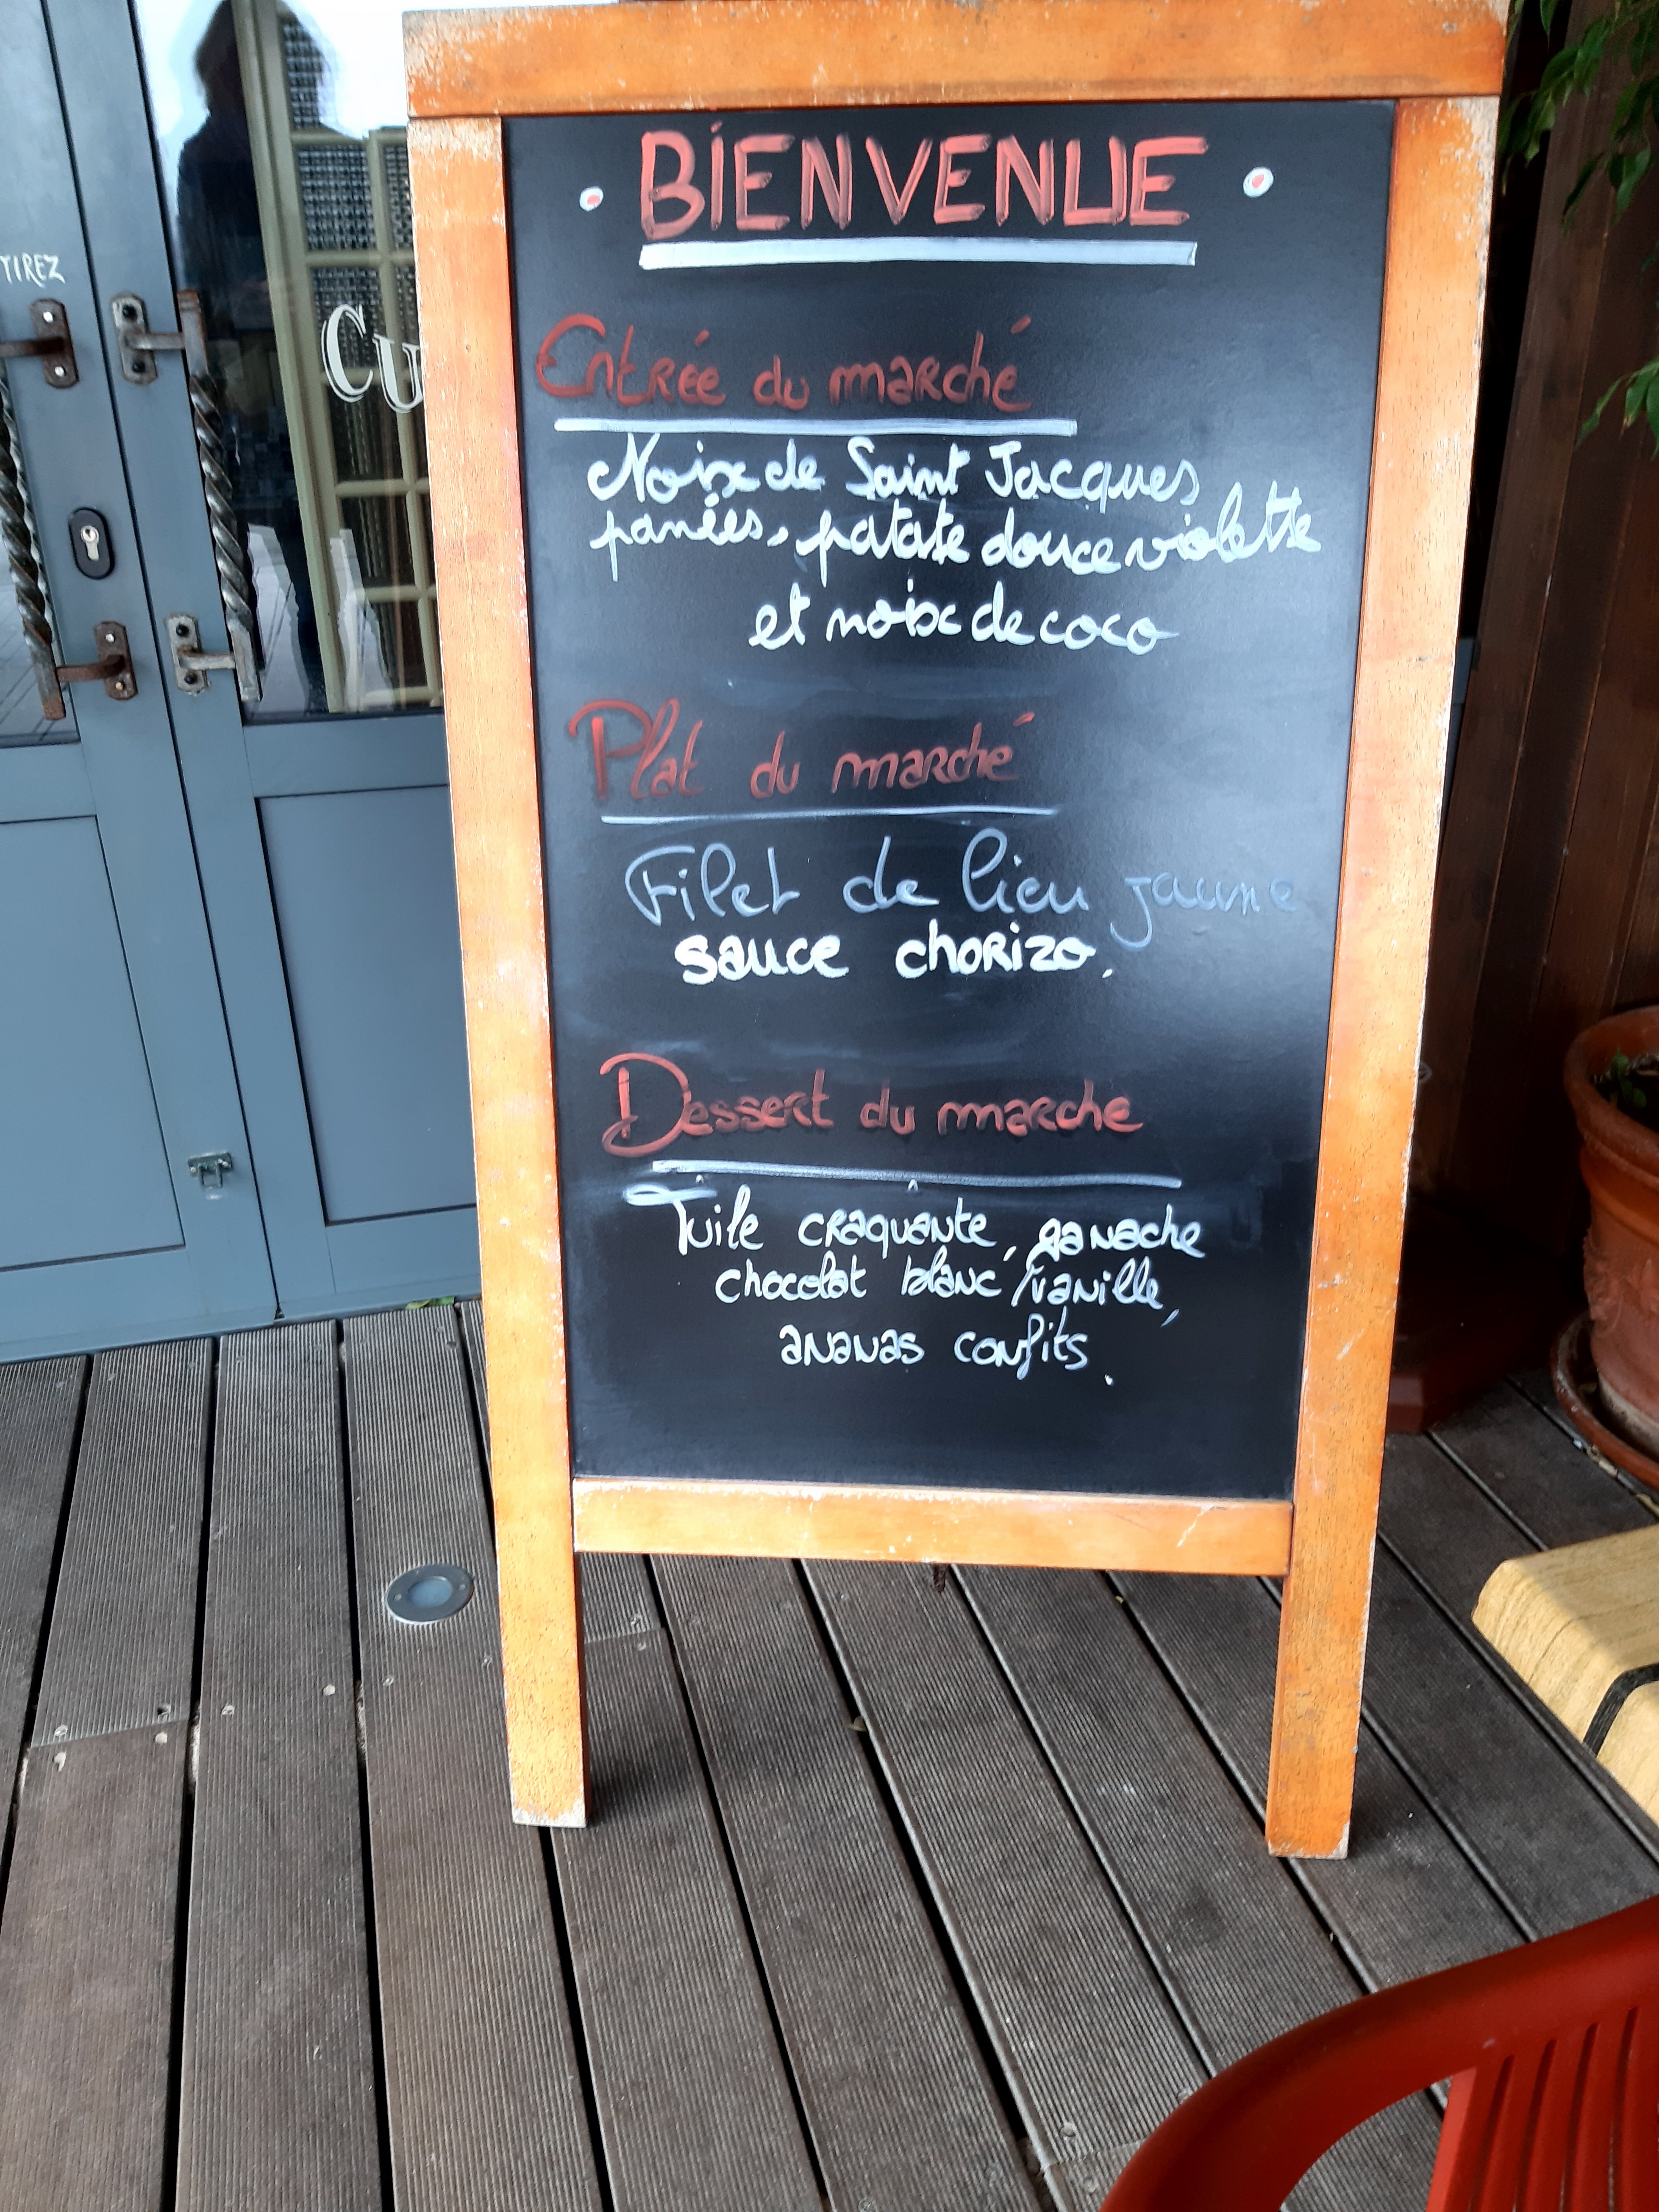 TIREZ
CU
BIENVENUE
Entrée du marché
Noix de Saint Jacques
panées, patate douce violette
et noix de coco
Plat du marché
Filet de lieu jaune
sauce chorizo.
Dessert du marche
Tuile craquante, ganache
chocolat blanc/vanille,
ananas confits.